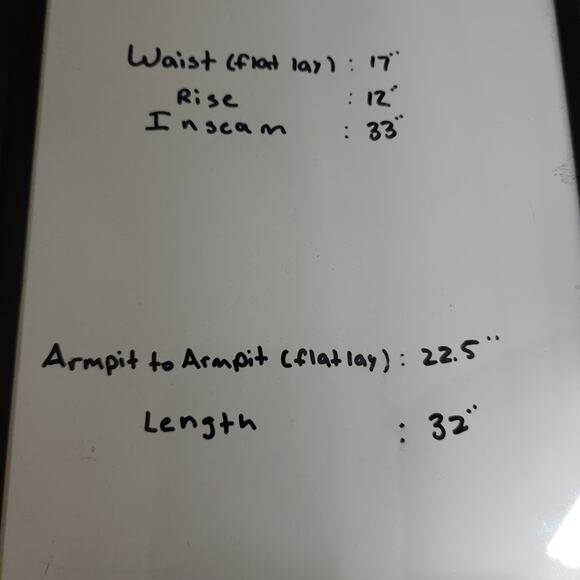 Waist (flat lay) : 17"
Rise : 12"
Inseam : 33"
Armpit to Armpit (flat lay) : 22.5"
Length : 32"